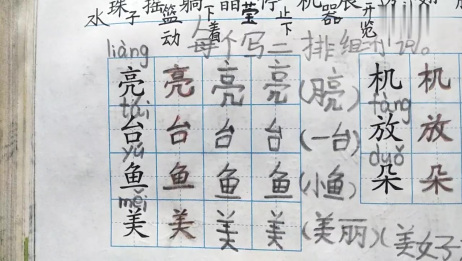 水 珠 子 摇 篮 躺 下 晶 莹 停 止 机 器 展 开
动 着 下 览
每个写二排组词。
liàng
亮 亮 亮 亮 机 机
tái fàng
台 台 台 台 (一台) 放 放
yú duǒ
鱼 鱼 鱼 鱼 (小鱼) 朵 朵
měi
美 美 美 美 (美丽)(美好